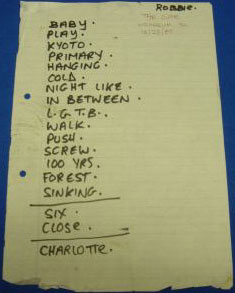 ROBBIE.
THE CURE
BABY.
PLAY.
KYOTO.
PRIMARY.
HANGING.
COLD.
NIGHT LIKE.
IN BETWEEN.
L.G.T.B..
WALK.
PUSH.
SCREW.
100 YRS.
FOREST.
SINKING.
SIX.
CLOSE.
CHARLOTTE.